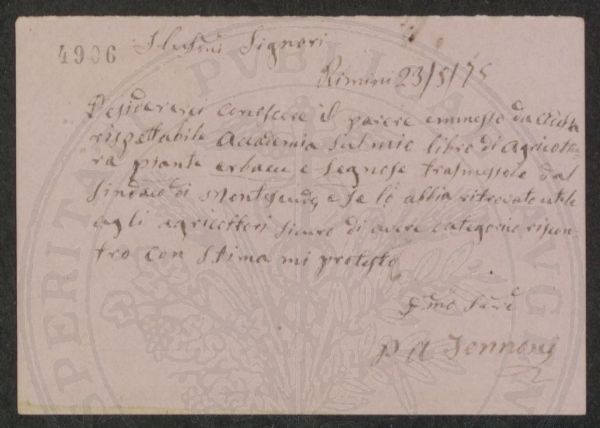 4906
Illustmi Signori
Rimini 23/5/75
Desidererei conoscere il parere emmesso da Cotesta
rispettabile Accademia sul mio libro di Agricoltu-
ra piante erbacee e legnose trasmessole dal
Sindaco di e se lo abbia ritrovato utile
agli agricoltori sicuro di avere categorico riscon-
tro con stima mi protesto
P A